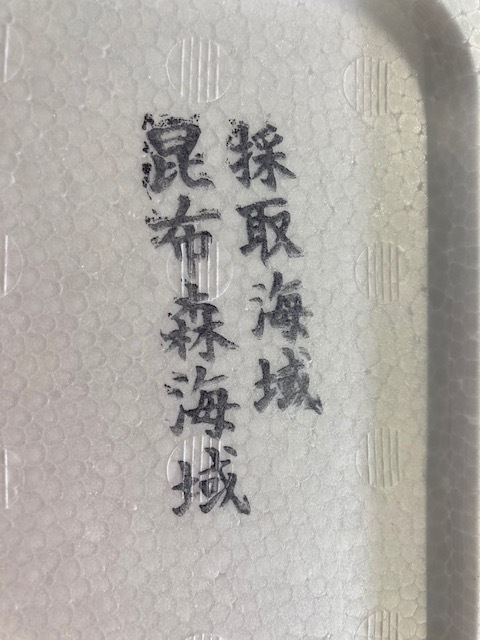 採取海域
昆布森海域